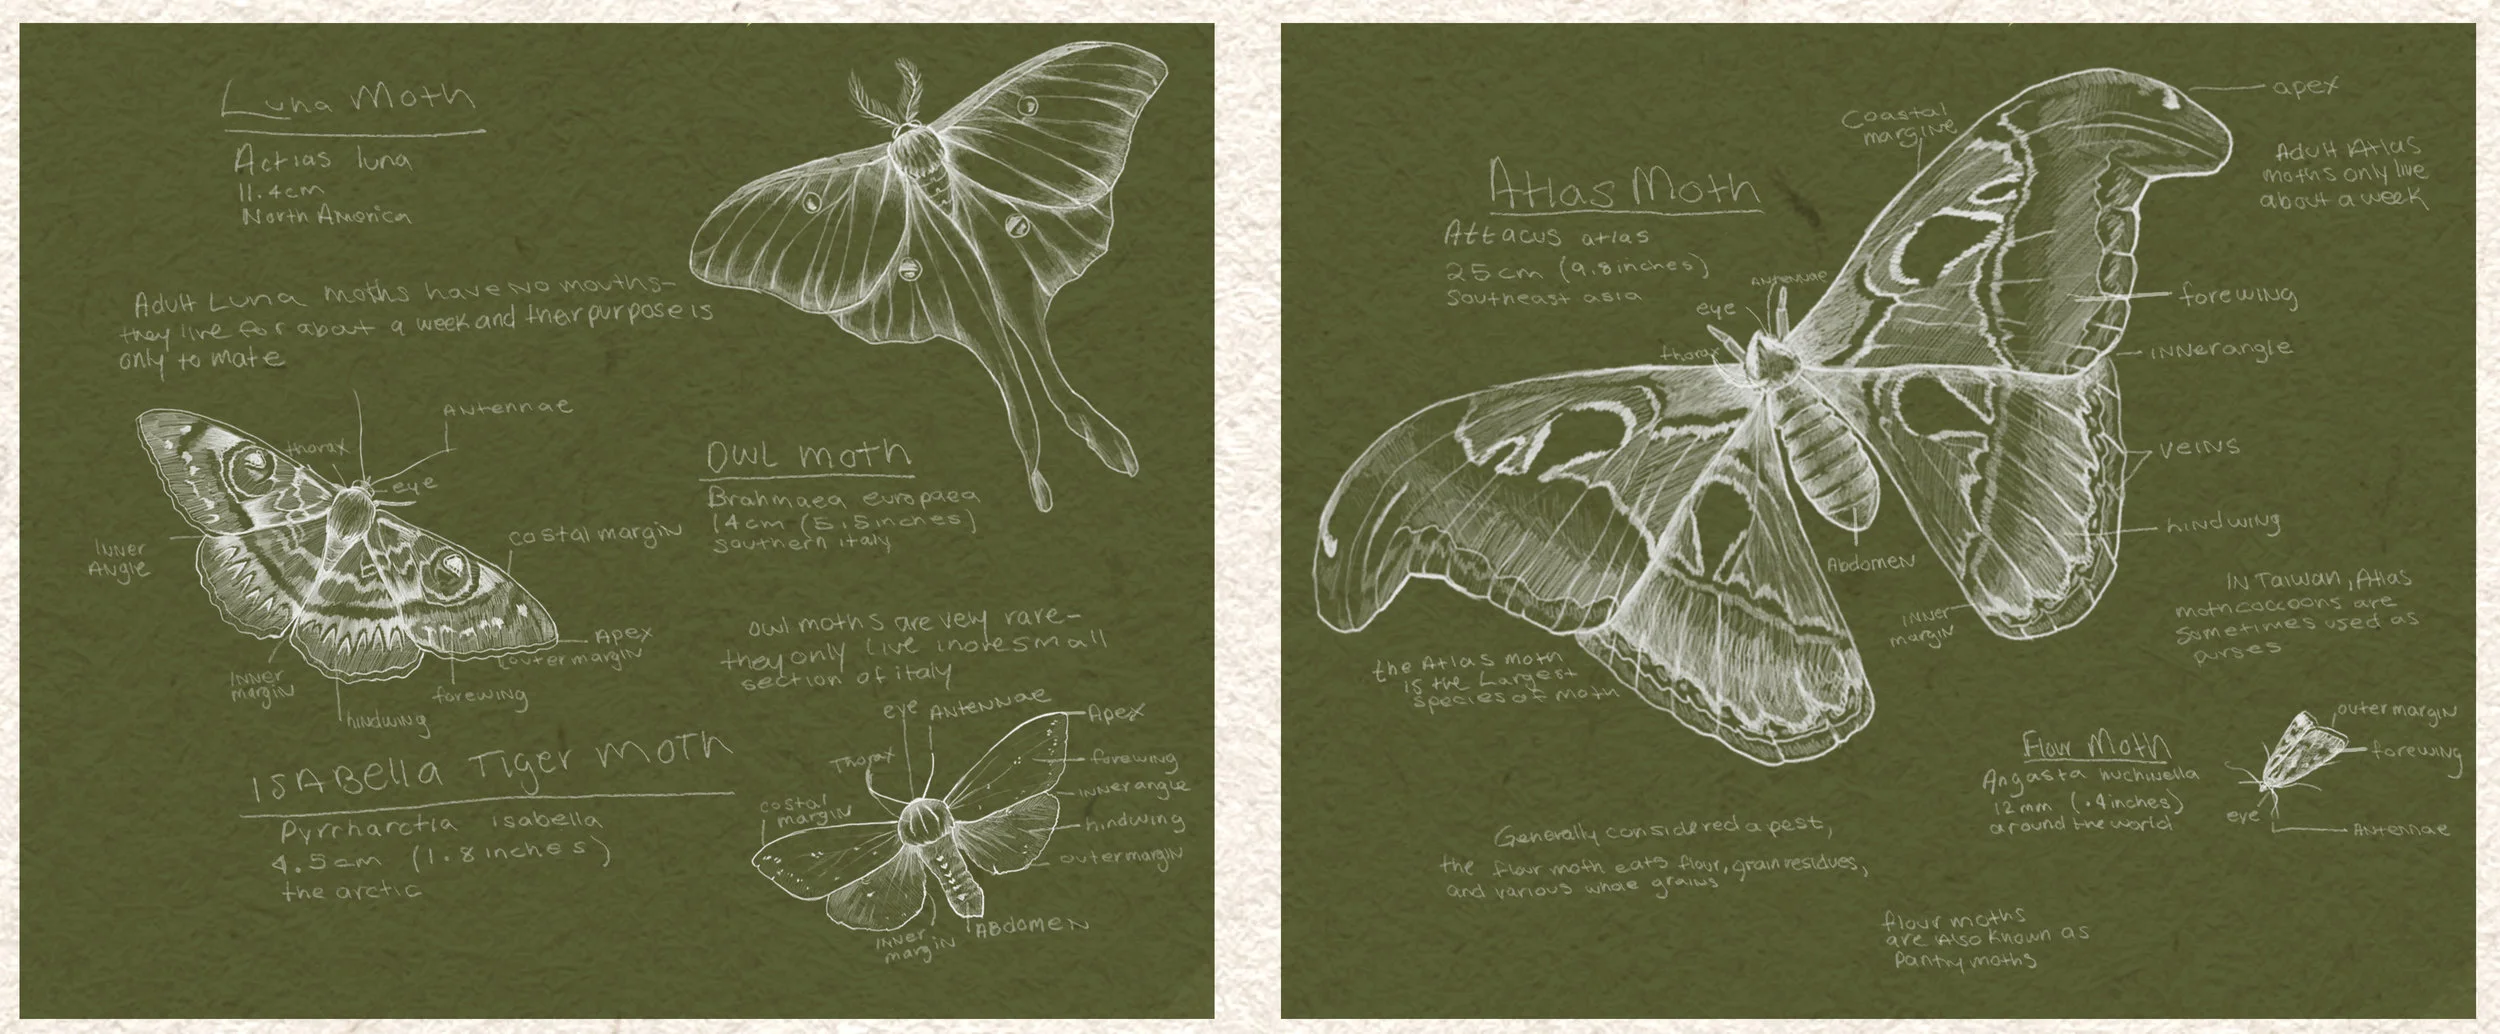 Luna Moth
Actias luna
11.4cm
North America
Adult Luna moths have no mouths-
they live for about a week and their purpose is
only to mate
Antennae
thorax
eye
costal margin
Inner
Angle
Apex
outer margin
Inner
margin
forewing
hindwing
Owl moth
Brahmaea europaea
14cm (5.5inches)
southern italy
owl moths are very rare-
they only live in one small
section of italy
Isabella Tiger Moth
Pyrrharctia isabella
4.5cm (1.8 inches)
the arctic
eye
Antennae
Apex
Thorax
forewing
inner angle
costal
margin
hindwing
outer margin
Inner
margin
Abdomen
apex
Coastal
margine
Adult Atlas
moths only live
about a week
Atlas Moth
Attacus atlas
25cm (9.8inches)
Southeast asia
Antennae
eye
thorax
forewing
inner angle
veins
hindwing
Abdomen
Inner
margin
In Taiwan, Atlas
moth coccoons are
sometimes used as
purses
the Atlas moth
is the Largest
species of moth
Flour Moth
Angasta huchinella
12mm (.4inches)
around the world
outer margin
forewing
eye
Antennae
Generally considered a pest,
the flour moth eats flour, grain residues,
and various whole grains
flour moths
are also known as
pantry moths